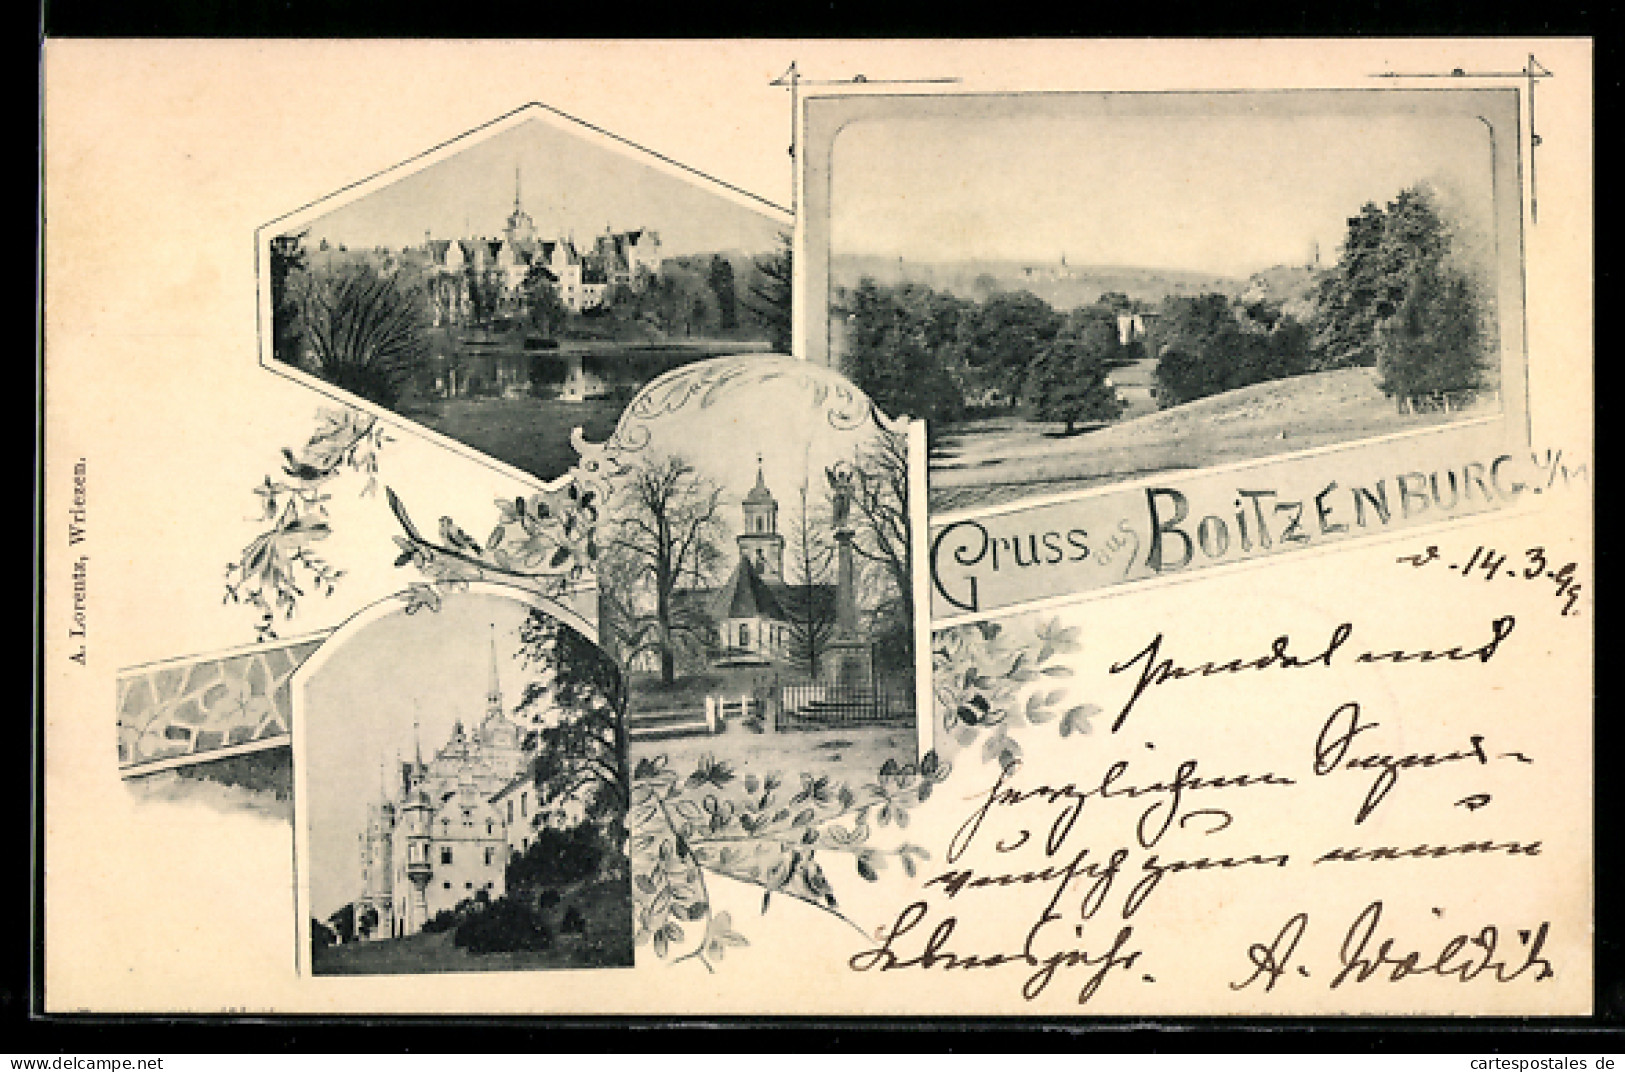 A. Lorentz, Wriezen.
Gruss aus BOITZENBURG. U/M
d. 14.3.99.
und
herzlichen
wunsch zum neuen
Lebensjahr. A.
cartespostales de